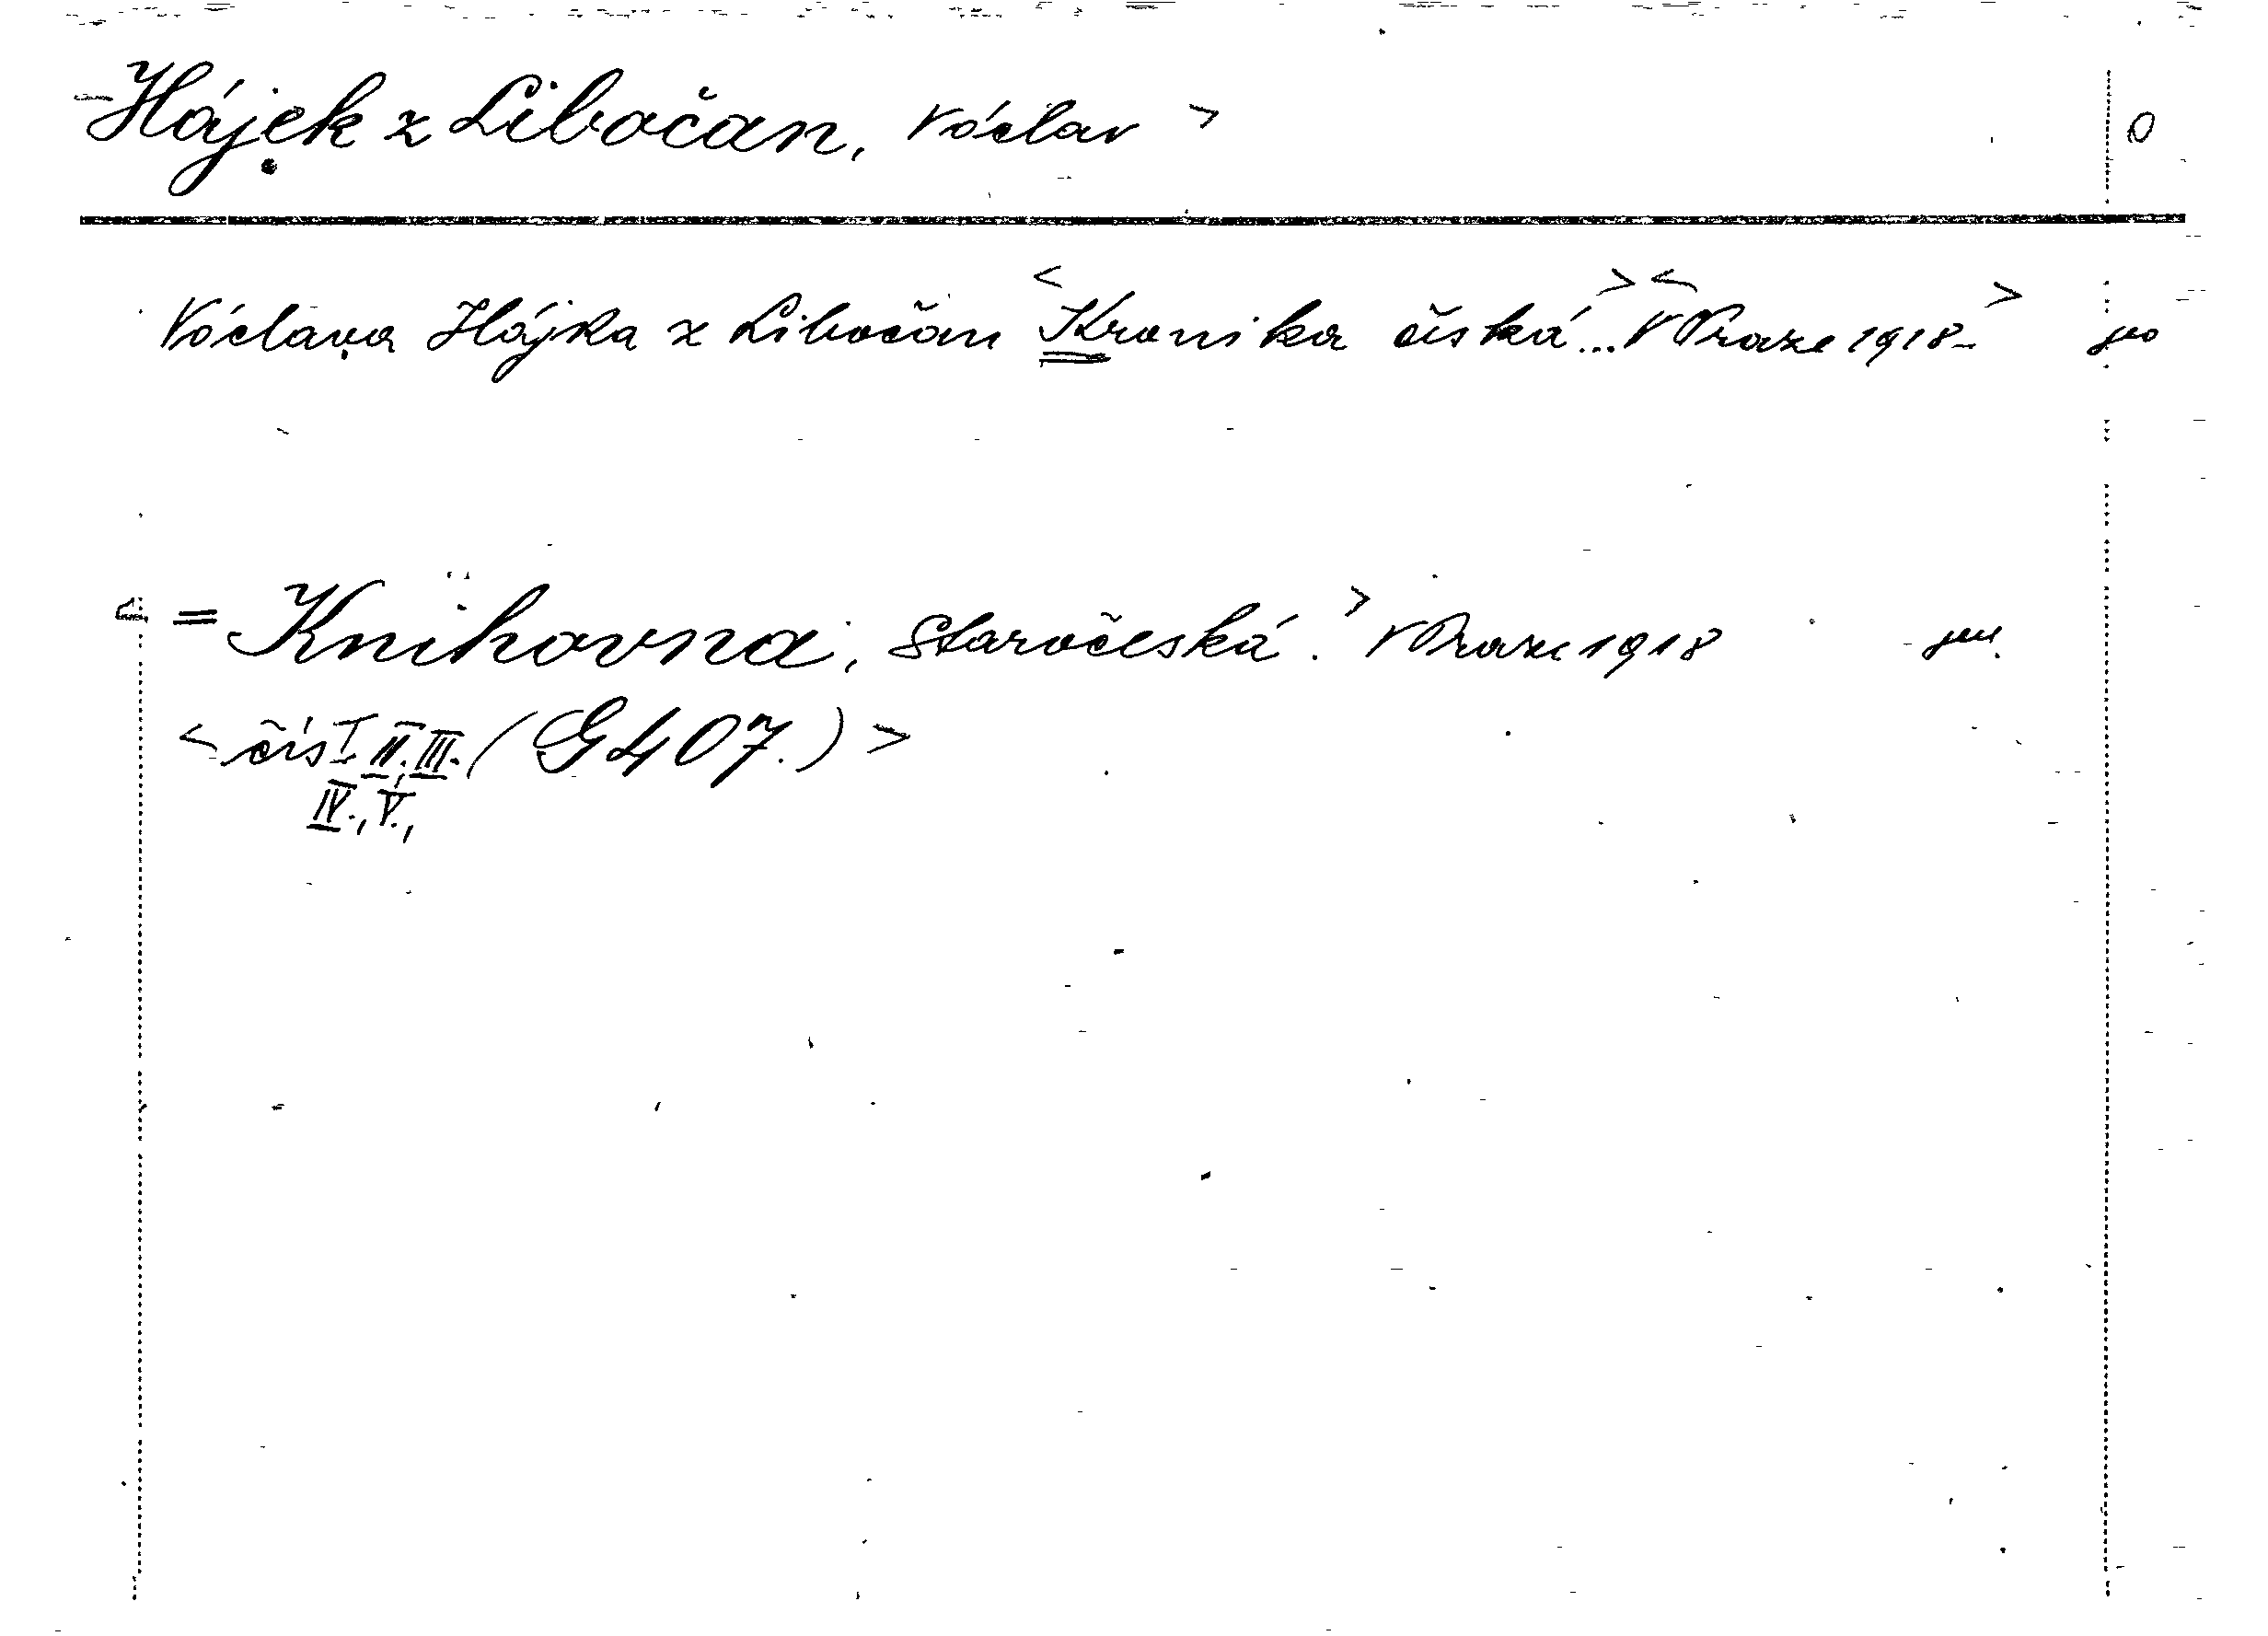 Hájek z Libočan, Václav > 0
Václava Hájka z Libočan <Kronika česká...> <V Praze 1918-> 
<= Knihovna, Staročeská.> V Praze 1918
<čís I. II. III. (G 407.)>
IV., V.,